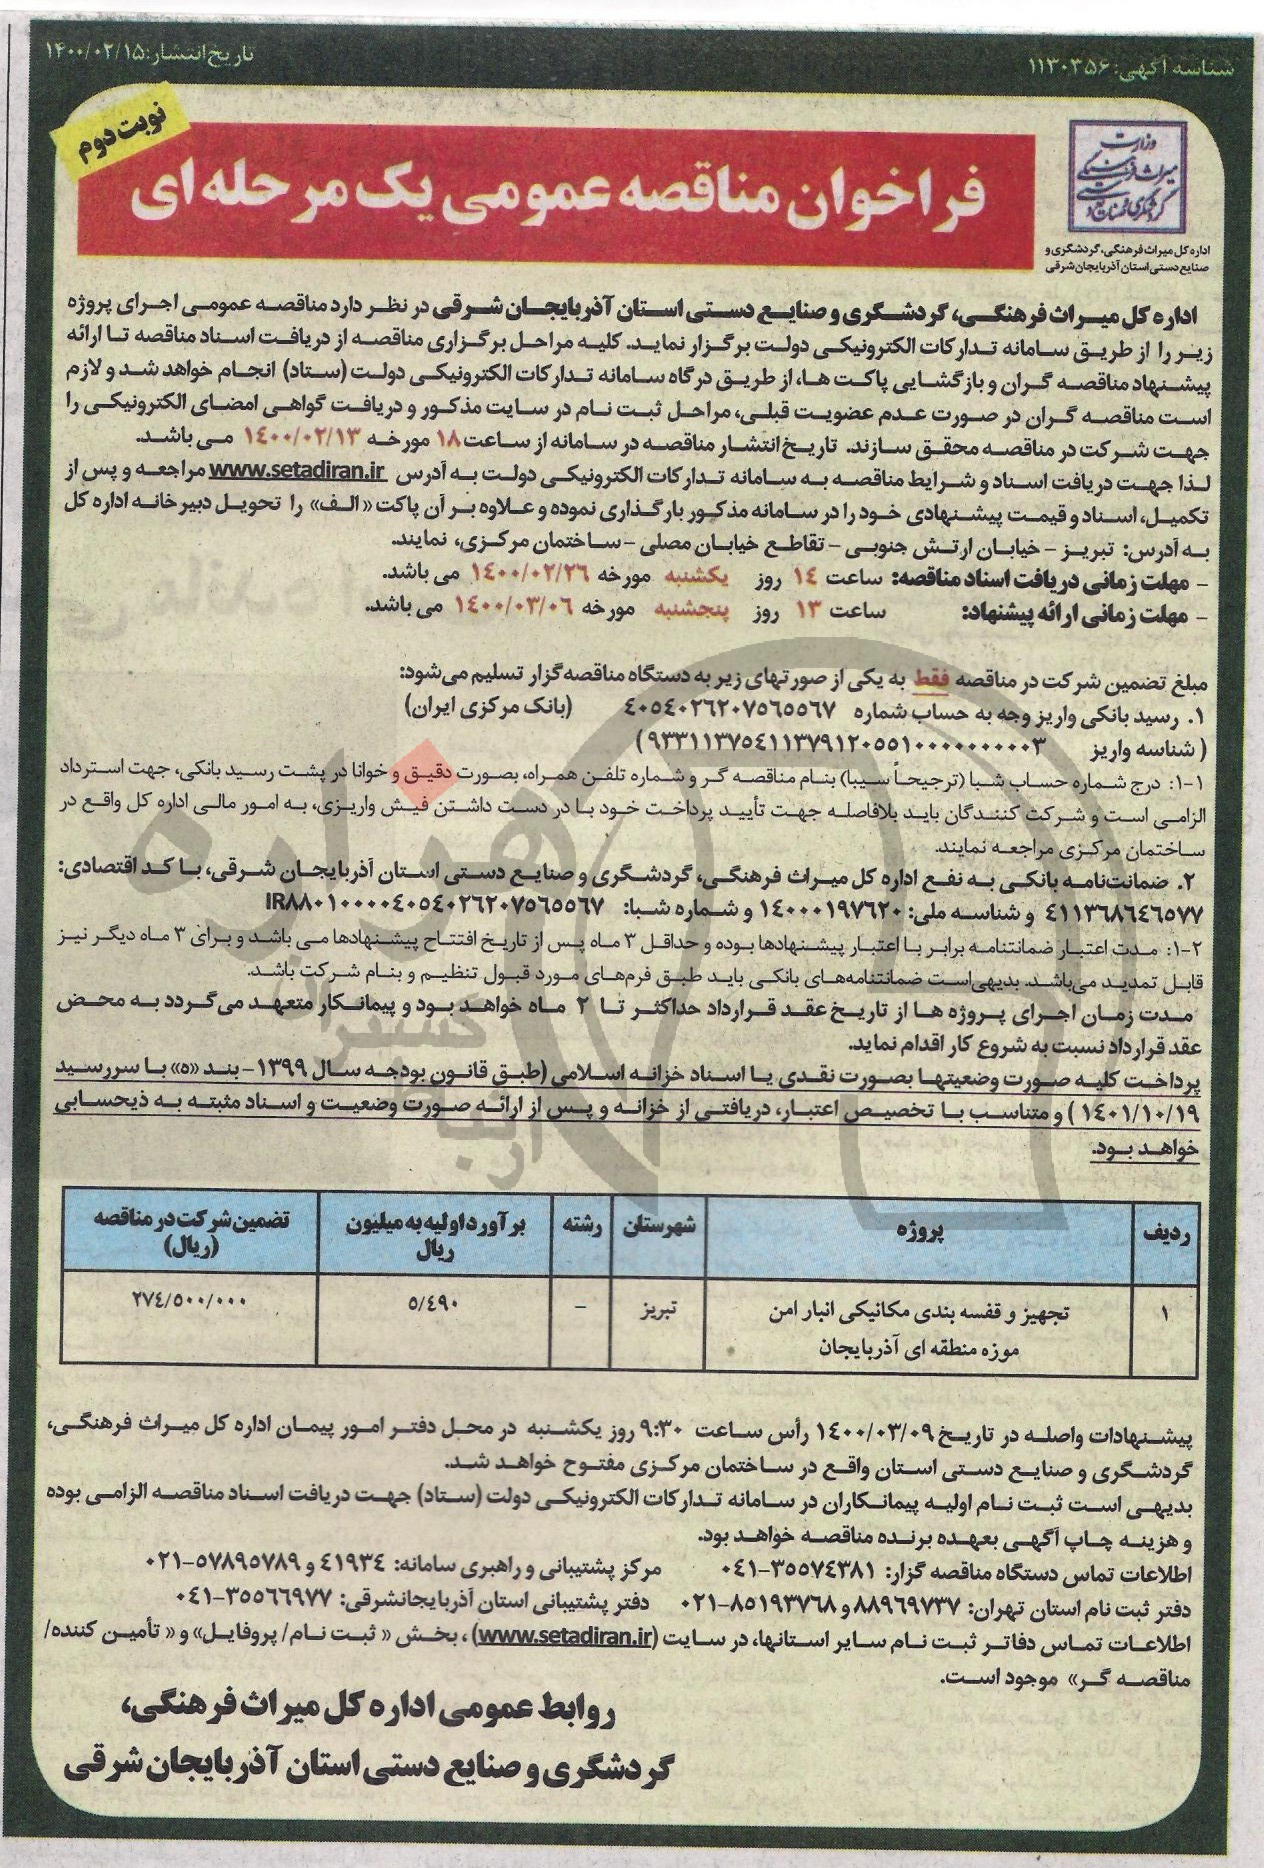 شناسه آگهی: ۱۱۳۰۳۵۶
تاریخ انتشار: ۱۴۰۰/۰۲/۱۵
نوبت دوم
وزارت میراث فرهنگی گردشگری و صنایع دستی
فراخوان مناقصه عمومی یک مرحله ای
اداره کل میراث فرهنگی، گردشگری و
صنایع دستی استان آذربایجان شرقی
اداره کل میراث فرهنگی، گردشگری و صنایع دستی استان آذربایجان شرقی در نظر دارد مناقصه عمومی اجرای پروژه
زیر را از طریق سامانه تدارکات الکترونیکی دولت برگزار نماید. کلیه مراحل برگزاری مناقصه از دریافت اسناد مناقصه تا ارائه
پیشنهاد مناقصه گران و بازگشایی پاکت ها، از طریق درگاه سامانه تدارکات الکترونیکی دولت (ستاد) انجام خواهد شد و لازم
است مناقصه گران در صورت عدم عضویت قبلی، مراحل ثبت نام در سایت مذکور و دریافت گواهی امضای الکترونیکی را
جهت شرکت در مناقصه محقق سازند. تاریخ انتشار مناقصه در سامانه از ساعت ۱۸ مورخه ۱۴۰۰/۰۲/۱۳ می باشد.
لذا جهت دریافت اسناد و شرایط مناقصه به سامانه تدارکات الکترونیکی دولت به آدرس www.setadiran.ir مراجعه و پس از
تکمیل، اسناد و قیمت پیشنهادی خود را در سامانه مذکور بارگذاری نموده و علاوه بر آن پاکت «الف» را تحویل دبیرخانه اداره کل
به آدرس: تبریز - خیابان ارتش جنوبی - تقاطع خیابان مصلی - ساختمان مرکزی، نمایند.
- مهلت زمانی دریافت اسناد مناقصه: ساعت ۱۴ روز یکشنبه مورخه ۱۴۰۰/۰۲/۲۶ می باشد.
- مهلت زمانی ارائه پیشنهاد: ساعت ۱۳ روز پنجشنبه مورخه ۱۴۰۰/۰۳/۰۶ می باشد.
مبلغ تضمین شرکت در مناقصه فقط به یکی از صورتهای زیر به دستگاه مناقصه گزار تسلیم می‌شود:
۱. رسید بانکی واریز وجه به حساب شماره ۴۰۵۴۰۲۶۲۰۷۵۶۵۵۶۷ (بانک مرکزی ایران)
( شناسه واریز ۹۳۳۱۱۳۷۵۴۱۱۳۷۹۱۲۰۵۵۱۰۰۰۰۰۰۰۰۰۰۳)
۱-۱: درج شماره حساب شبا (ترجیحاً سیبا) بنام مناقصه گر و شماره تلفن همراه، بصورت دقیق و خوانا در پشت رسید بانکی، جهت استرداد
الزامی است و شرکت کنندگان باید بلافاصله جهت تأیید پرداخت خود با در دست داشتن فیش واریزی، به امور مالی اداره کل واقع در
ساختمان مرکزی مراجعه نمایند.
۲. ضمانت‌نامه بانکی به نفع اداره کل میراث فرهنگی، گردشگری و صنایع دستی استان آذربایجان شرقی، با کد اقتصادی:
۴۱۱۳۶۸۶۴۶۵۷۷ و شناسه ملی: ۱۴۰۰۰۱۹۷۶۲۰ و شماره شبا: IR۸۸۰۱۰۰۰۰۴۰۵۴۰۲۶۲۰۷۵۶۵۵۶۷
۲-۱: مدت اعتبار ضمانتنامه برابر با اعتبار پیشنهادها بوده و حداقل ۳ ماه پس از تاریخ افتتاح پیشنهادها می باشد و برای ۳ ماه دیگر نیز
قابل تمدید می‌باشد. بدیهی‌است ضمانتنامه‌های بانکی باید طبق فرم‌های مورد قبول تنظیم و بنام شرکت باشد.
مدت زمان اجرای پروژه ها از تاریخ عقد قرارداد حداکثر تا ۲ ماه خواهد بود و پیمانکار متعهد می‌گردد به محض
عقد قرارداد نسبت به شروع کار اقدام نماید.
پرداخت کلیه صورت وضعیتها بصورت نقدی یا اسناد خزانه اسلامی (طبق قانون بودجه سال ۱۳۹۹ - بند «ه» با سررسید
۱۴۰۱/۱۰/۱۹) و متناسب با تخصیص اعتبار، دریافتی از خزانه و پس از ارائه صورت وضعیت و اسناد مثبته به ذیحسابی
خواهد بود.
ردیف پروژه شهرستان رشته برآورد اولیه به میلیون ریال تضمین شرکت در مناقصه (ریال)
۱ تجهیز و قفسه بندی مکانیکی انبار امن تبریز - ۵/۴۹۰ ۲۷۴/۵۰۰/۰۰۰
موزه منطقه ای آذربایجان
پیشنهادات واصله در تاریخ ۱۴۰۰/۰۳/۰۹ رأس ساعت ۹:۳۰ روز یکشنبه در محل دفتر امور پیمان اداره کل میراث فرهنگی،
گردشگری و صنایع دستی استان واقع در ساختمان مرکزی مفتوح خواهد شد.
بدیهی است ثبت نام اولیه پیمانکاران در سامانه تدارکات الکترونیکی دولت (ستاد) جهت دریافت اسناد مناقصه الزامی بوده
و هزینه چاپ آگهی بعهده برنده مناقصه خواهد بود.
اطلاعات تماس دستگاه مناقصه گزار: ۳۵۵۷۴۳۸۱-۰۴۱ مرکز پشتیبانی و راهبری سامانه: ۴۱۹۳۴ و ۵۷۸۹۵۷۸۹-۰۲۱
دفتر ثبت نام استان تهران: ۸۸۹۶۹۷۳۷ و ۸۵۱۹۳۷۶۸-۰۲۱ دفتر پشتیبانی استان آذربایجانشرقی: ۳۵۵۶۶۹۷۷-۰۴۱
اطلاعات تماس دفاتر ثبت نام سایر استانها، در سایت (www.setadiran.ir)، بخش « ثبت نام/ پروفایل» و « تأمین کننده/
مناقصه گر» موجود است.
روابط عمومی اداره کل میراث فرهنگی،
گردشگری و صنایع دستی استان آذربایجان شرقی